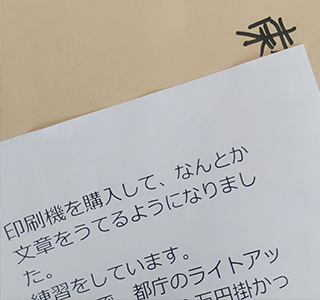 東
印刷機を購入して、なんとか
文章をうてるようになりまし
た。
練習をしています。
都庁のライトアッ
円掛かっ